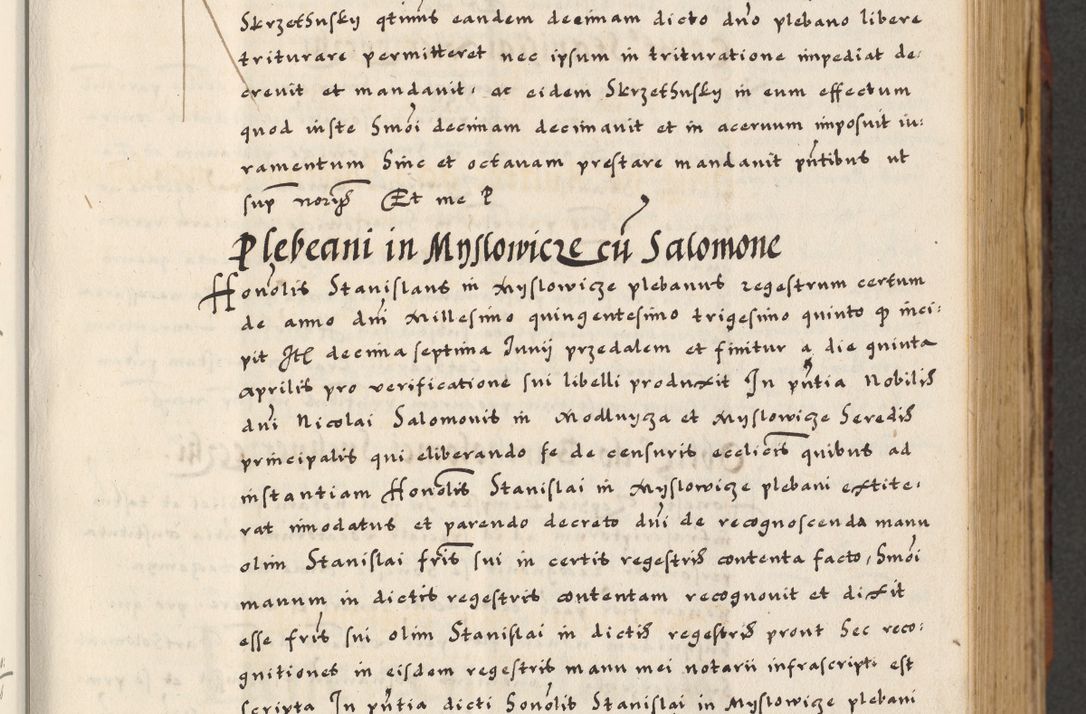 Skrzethusky qtinus eandem decimam dicto dno plebano libere
triturare permitteret nec ipsum in trituratione impediat de:
creuit et mandauit, ac eidem Skrzethusky in eum effectum
quod iuste hmoi decimam decimauit et in aceruum imposuit iu:
ramentum hinc et octauam prestare mandauit pntibus ut
sup noriis Et me P
Plebeani in Myslowicze cū Salomone
Honolis Stanislaus in Myslowicze plebanus regestrum certum
de anno dni Millesimo quingentesimo trigesimo quinto qp inci:
pit Itē decima septima Junii przedalem et finitur a die quinta
aprilis pro verificatione sui libelli produxit In pntia Nobilis
dni Nicolai Salomonis in Modlnycza et Myslowicze heredis
principalis qui eliberando se de censuris ecclicis quibus ad
instantiam Honolis Stanislai in Myslowicze plebani extite:
rat innodatus et parendo decreto dni de recognoscenda manu
olim Stanislai fris sui in certis regestris contenta facto, hmoi
manum in dictis regestris contentam recognouit et dixit
esse fris sui olim Stanislai in dictis regestris prout hec reco:
gnitiones in eisdem regestris manu mei notarii infrascripti est
scripta In pntia dicti honolis Stanislai in Myslowicze plebani